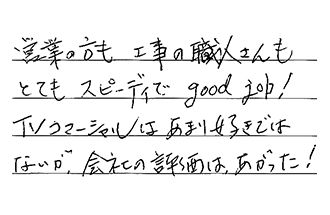 営業の方も 工事の職人さんも
とても スピーディで good job!
TVコマーシャルは あまり好きでは
ないが、会社の評価は、あがった!